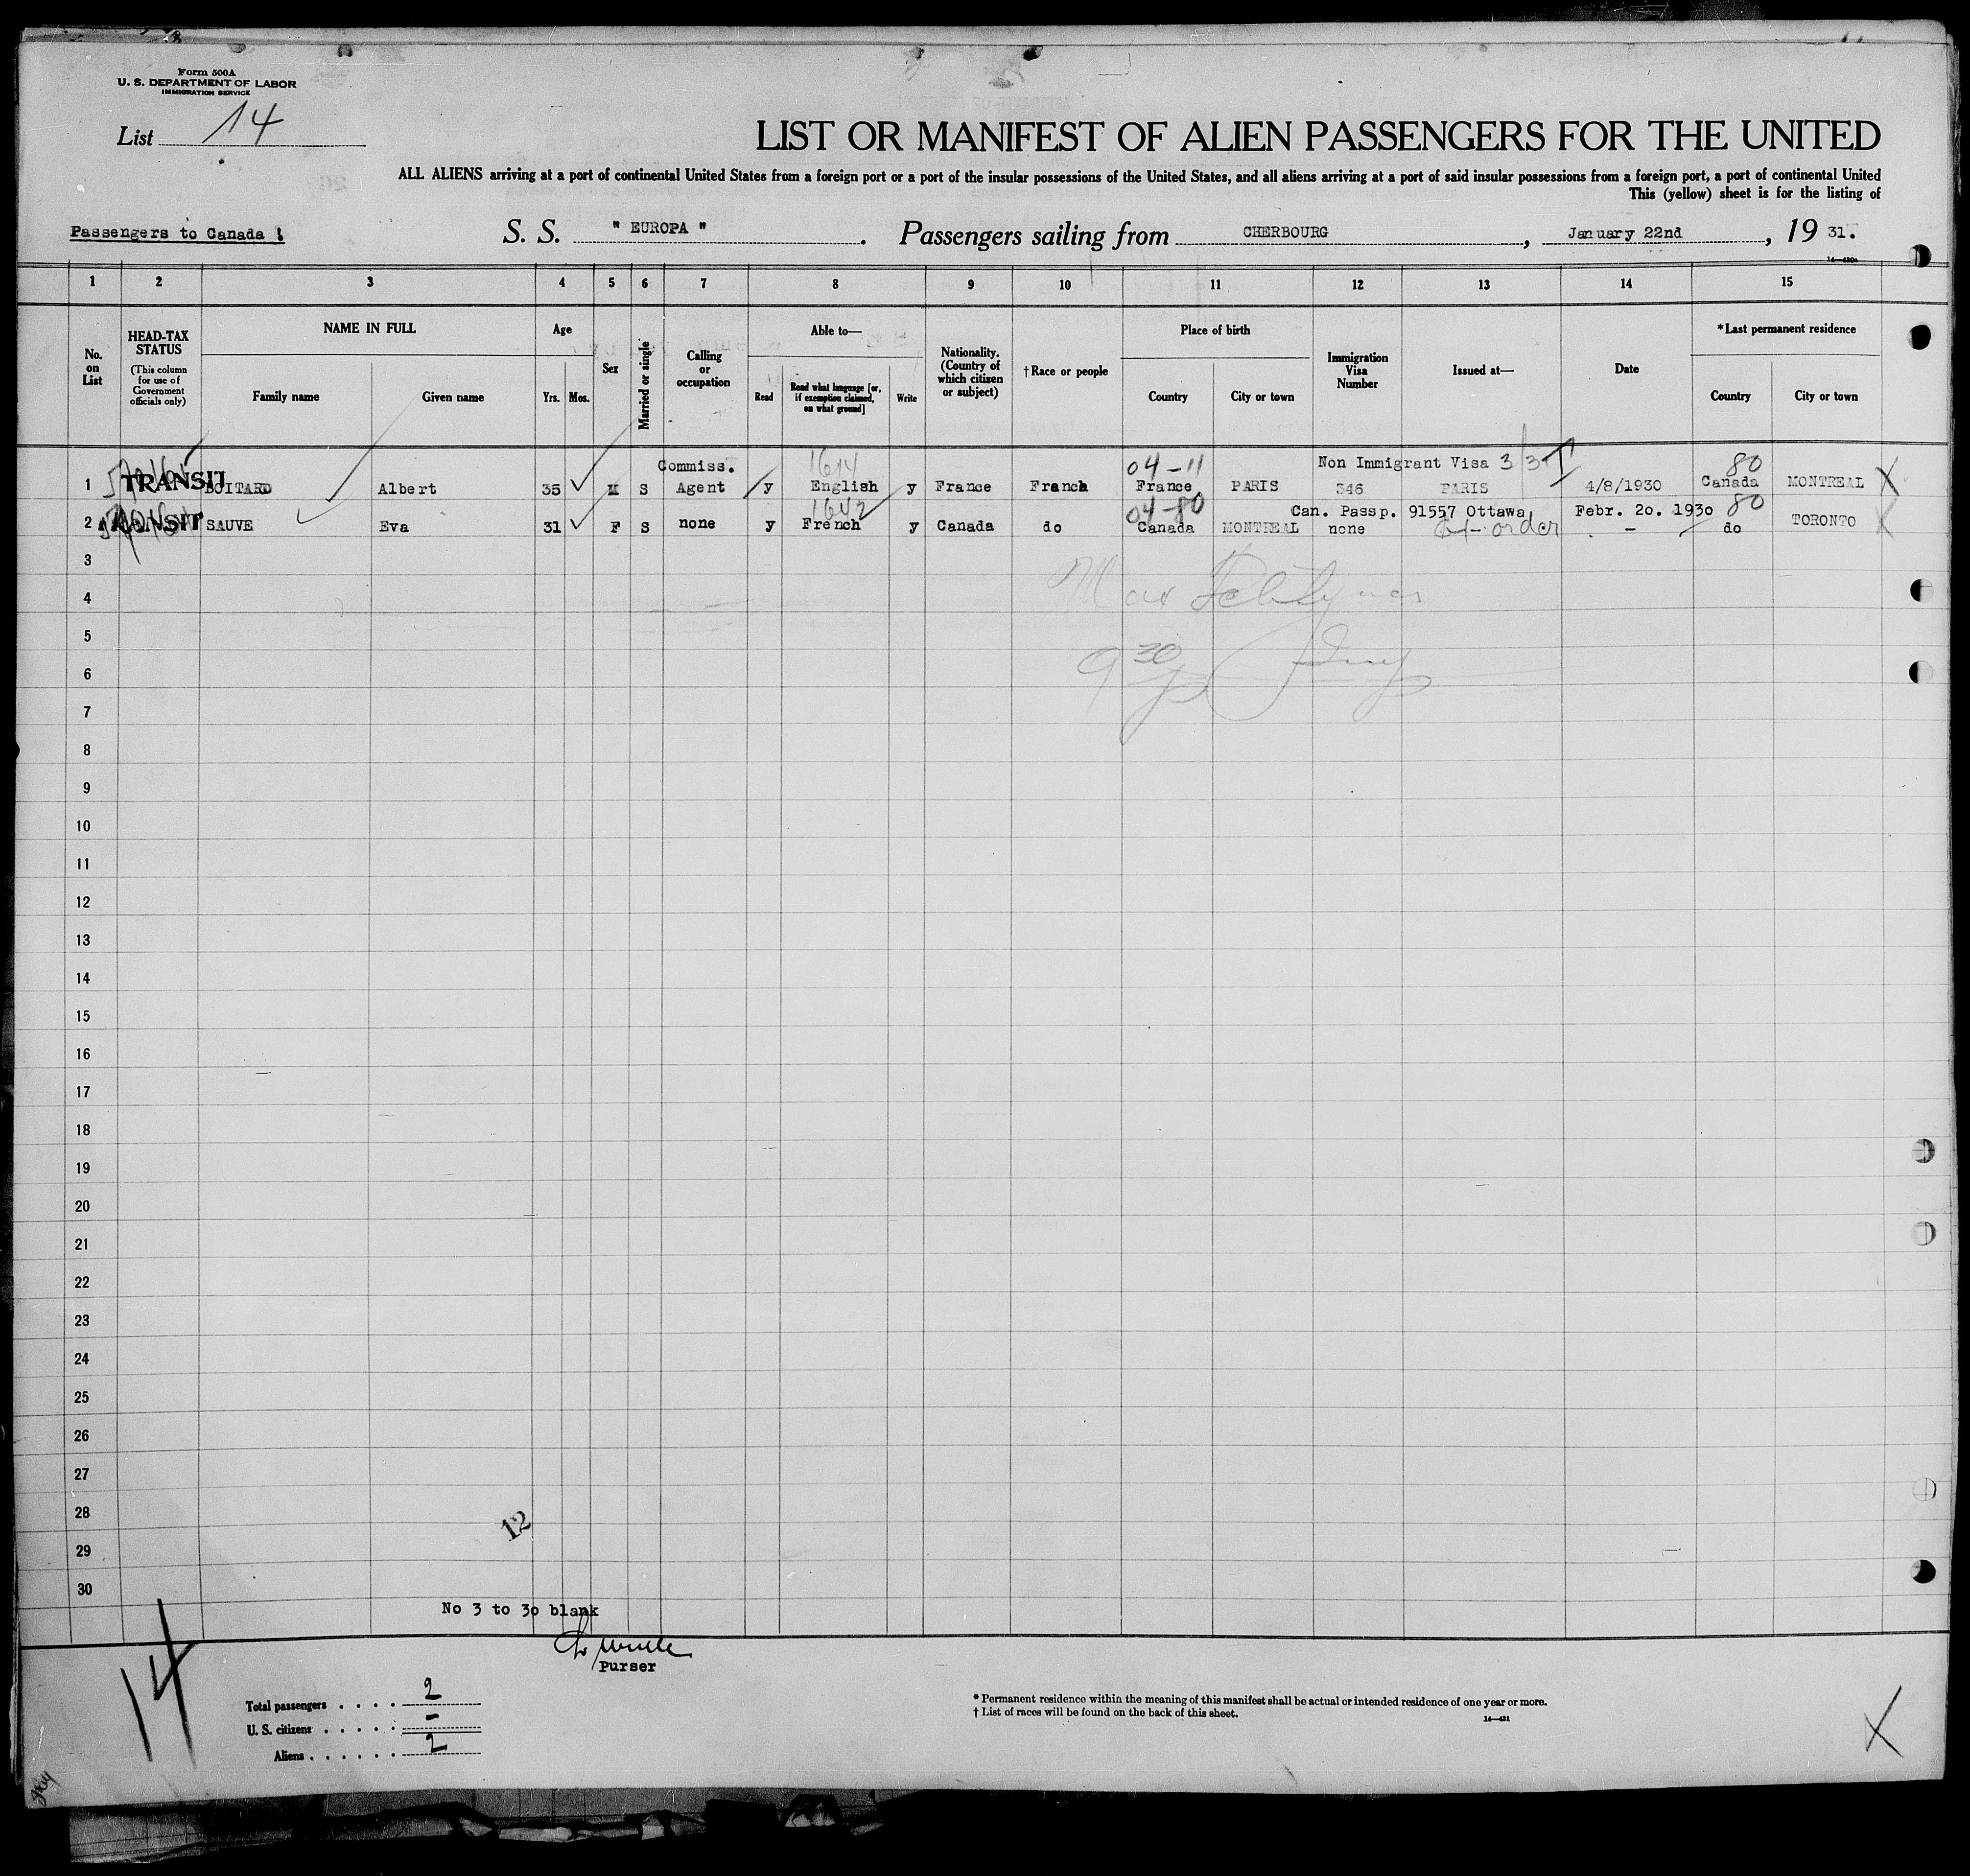 Form 500A
U. S. DEPARTMENT OF LABOR
IMMIGRATION SERVICE
List 14
LIST OR MANIFEST OF ALIEN PASSENGERS FOR THE UNITED
ALL ALIENS arriving at a port of continental United States from a foreign port or a port of the insular possessions of the United States, and all aliens arriving at a port of said insular possessions from a foreign port, a port of continental United
This (yellow) sheet is for the listing of
Passengers to Canada ! S. S. " EUROPA ". Passengers sailing from CHERBOURG, January 22nd, 19 31.
1 2 3 4 5 6 7 8 9 10 11 12 13 14 15
No. on List
HEAD-TAX STATUS
(This column for use of Government officials only)
NAME IN FULL
Family name Given name
Age
Yrs. Mos.
Sex
Married or single
Calling or occupation
Able to—
Read
Read what language [or, if exemption claimed, on what ground]
Write
Nationality. (Country of which citizen or subject)
†Race or people
Place of birth
Country City or town
Immigration Visa Number
Issued at—
Date
*Last permanent residence
Country City or town
Commiss. 1614 04-11 Non Immigrant Visa 80
1 TRANSIT BOITARD Albert 35 M S Agent y English y France French France PARIS 346 PARIS 4/8/1930 Canada MONTREAL X
1642 04-80 Can. Passp. 91557 Ottawa Febr. 20. 1930 80
2 TRANSIT SAUVE Eva 31 F S none y French y Canada do Canada MONTREAL none order - do TORONTO X
3
4
5
6
9 30
7
8
9
10
11
12
13
14
15
16
17
18
19
20
21
22
23
24
25
26
27
28
12
29
30
No 3 to 30 blank
Purser
14
Total passengers . . . . 2
U. S. citizens . . . . . -
Aliens . . . . . . 2
* Permanent residence within the meaning of this manifest shall be actual or intended residence of one year or more.
† List of races will be found on the back of this sheet.
14—421
X